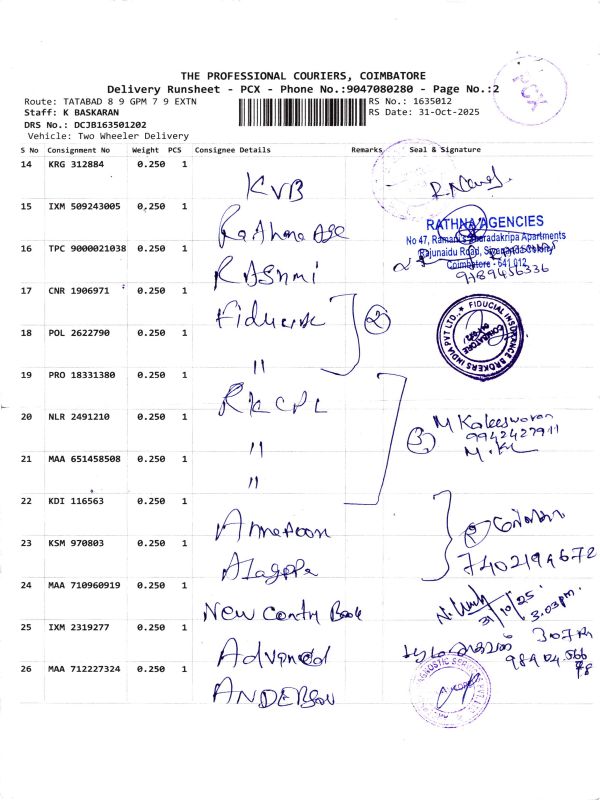 THE PROFESSIONAL COURIERS, COIMBATORE
Delivery Runsheet - PCX - Phone No.:9047080280 - Page No.:2
PCX
Route: TATABAD 8 9 GPM 7 9 EXTN
RS No.: 1635012
Staff: K BASKARAN
RS Date: 31-Oct-2025
DRS No.: DCJB163501202
Vehicle: Two Wheeler Delivery
S No Consignment No Weight PCS Consignee Details Remarks Seal & Signature
14 KRG 312884 0.250 1
KVB
15 IXM 509243005 0.250 1
RATHNA AGENCIES
No 47, Ramani's
Apartments
Coimbatore - 641 012
16 TPC 9000021038 0.250 1
RASHMI
9489456336
17 CNR 1906971 0.250 1
2
FIDUCIAL INSURANCE BROKERS INDIA PVT LTD.
COIMBATORE
18 POL 2622790 0.250 1
"
19 PRO 18331380 0.250 1
20 NLR 2491210 0.250 1
M Kaleeswaran
9942427911
3
21 MAA 651458508 0.250 1
"
"
22 KDI 116563 0.250 1
23 KSM 970803 0.250 1
2
24 MAA 710960919 0.250 1
New Contry Book
31/10/25
3.03pm
25 IXM 2319277 0.250 1
Advanced
26 MAA 712227324 0.250 1
ANDERSON